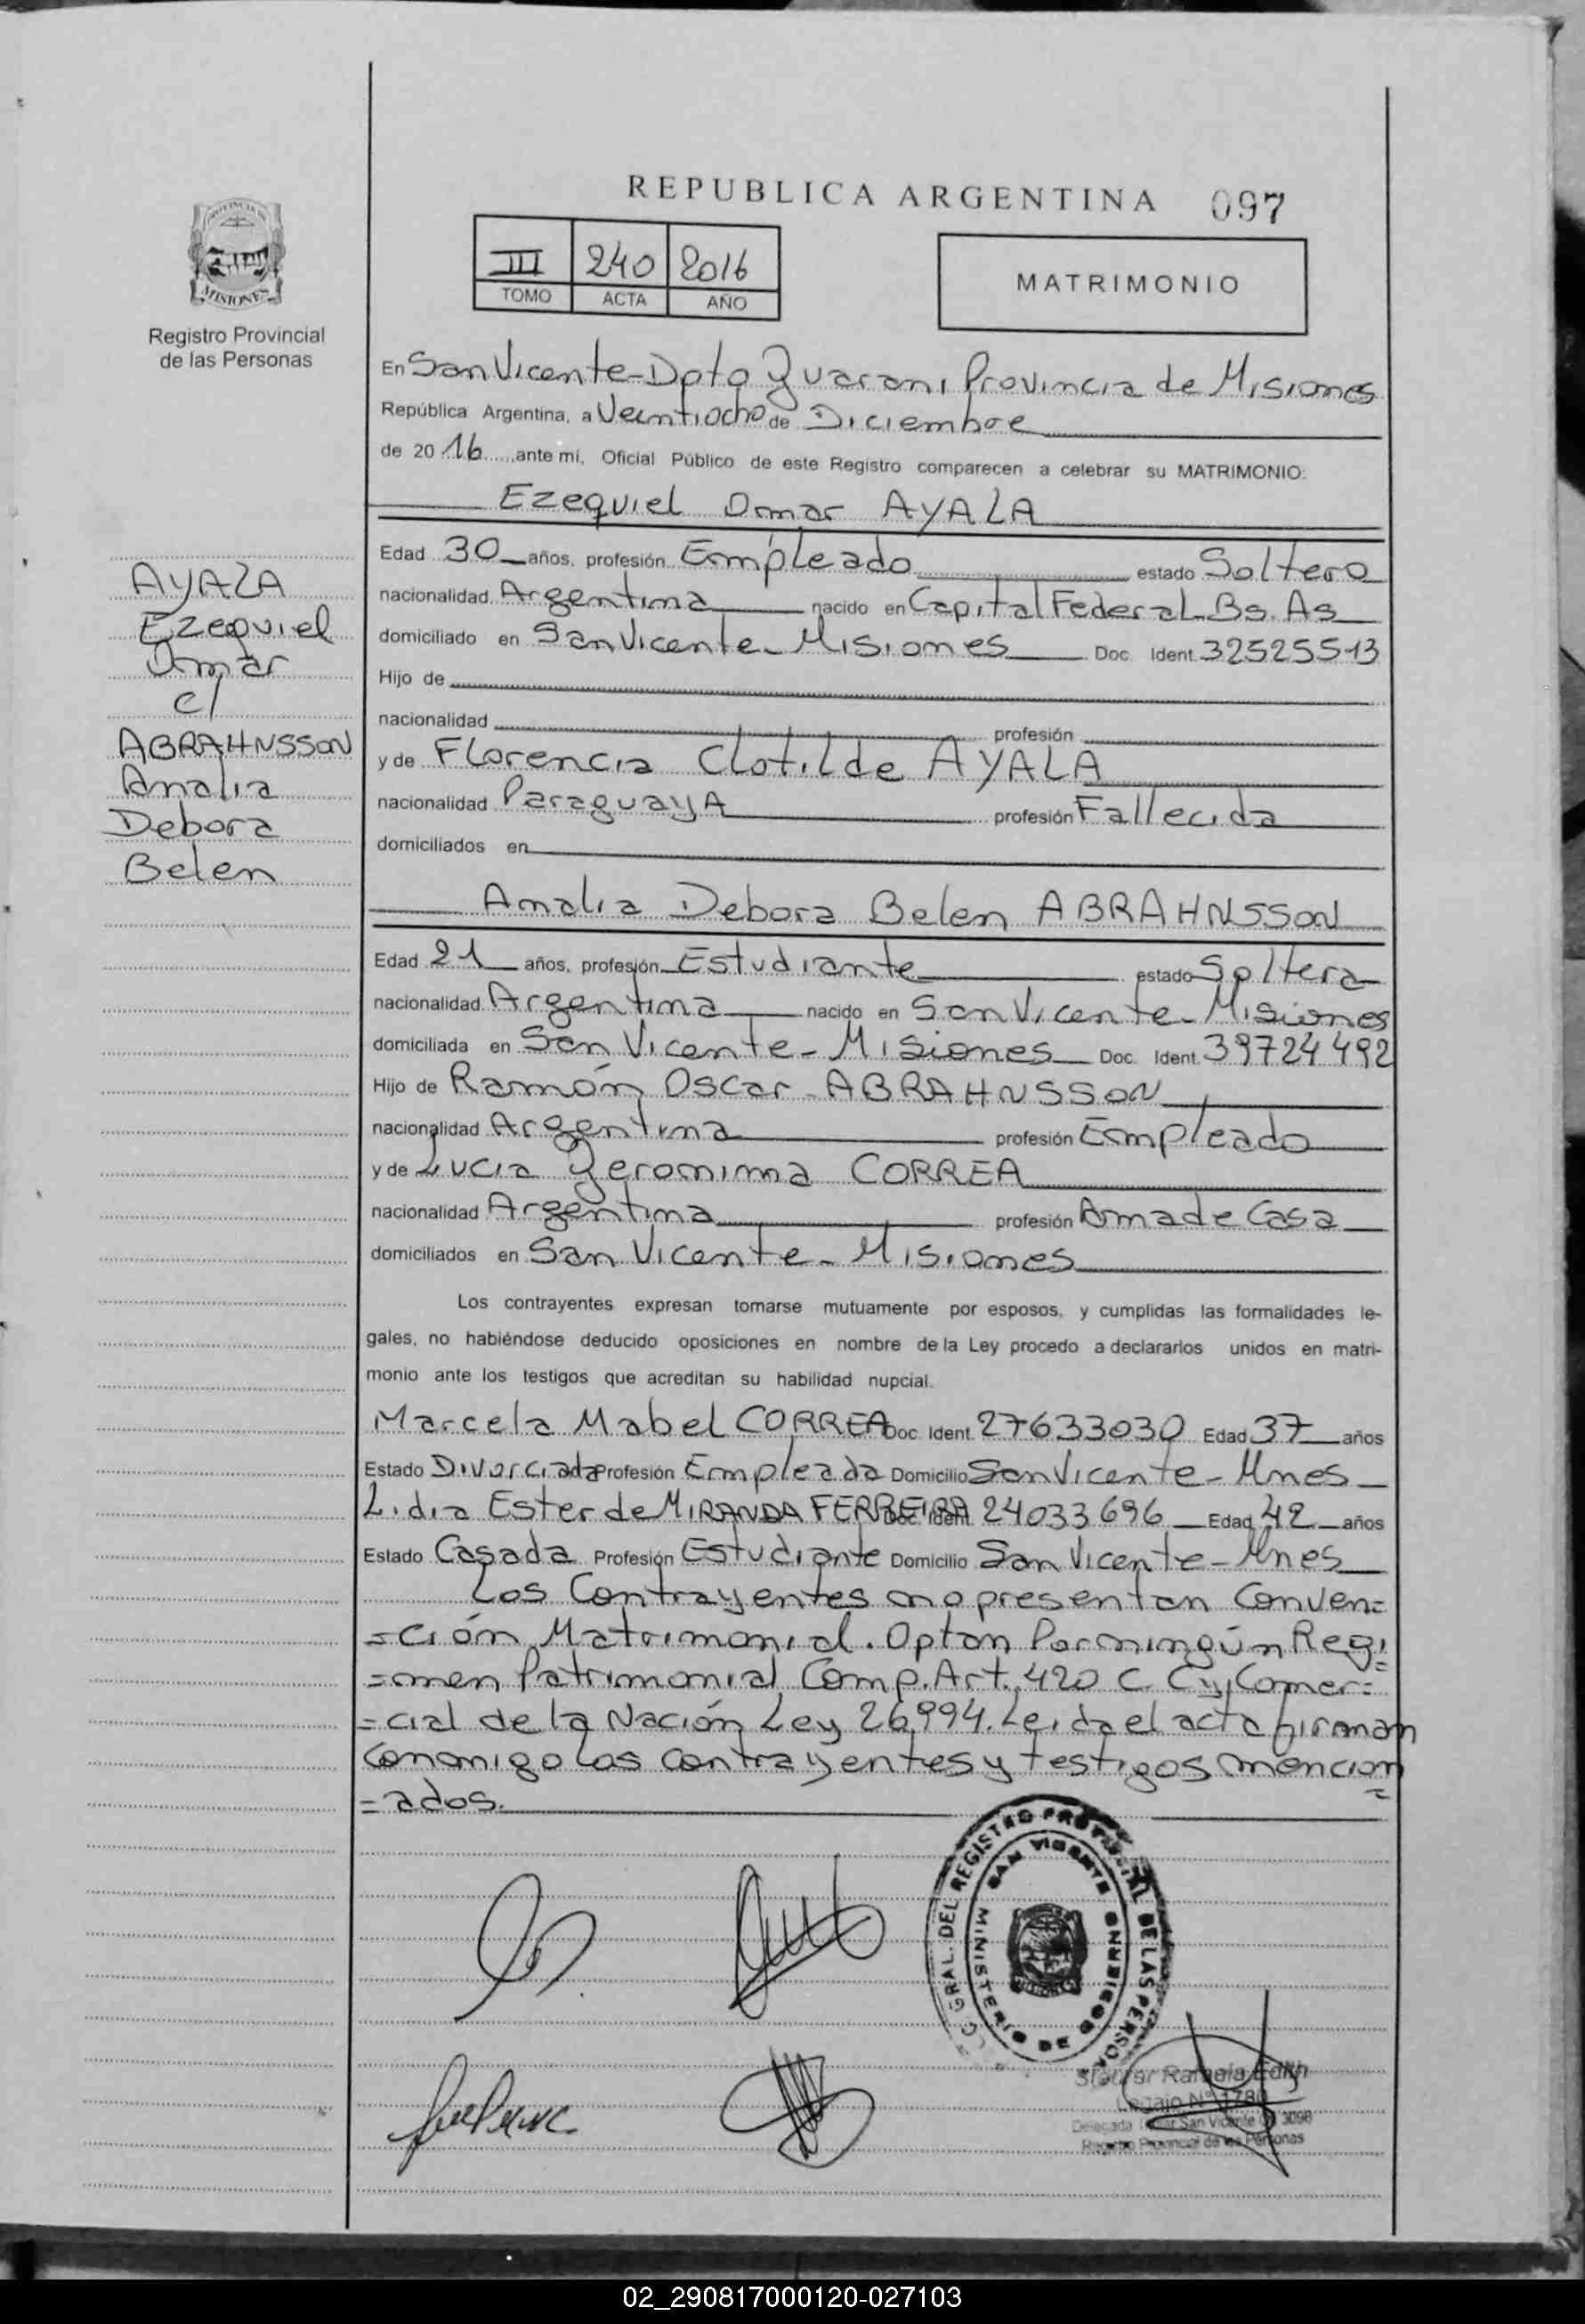 REPUBLICA ARGENTINA 097
III 240 2016
TOMO ACTA AÑO
MATRIMONIO
PROVINCIA DE
MISIONES
Registro Provincial
de las Personas
En San Vicente - Dpto Guarani Provincia de Misiones
República Argentina, a Veintiocho de Diciembre
de 2016 ante mí, Oficial Público de este Registro comparecen a celebrar su MATRIMONIO:
Ezequiel Omar AYALA
Edad 30 años, profesión Empleado estado Soltero
nacionalidad Argentina nacido en Capital Federal Bs. As
domiciliado en San Vicente - Misiones Doc. Ident. 32525513
Hijo de
nacionalidad profesión
y de Florencia Clotilde AYALA
nacionalidad ParaguayA profesión Fallecida
domiciliados en
AYALA
Ezequiel
Omar
c/
ABRAHNSSON
Amalia
Debora
Belen
Amalia Debora Belen ABRAHNSSON
Edad 21 años, profesión Estudiante estado Soltera
nacionalidad Argentina nacido en San Vicente - Misiones
domiciliada en San Vicente - Misiones Doc. Ident. 39724492
Hijo de Ramón Oscar ABRAHNSSON
nacionalidad Argentina profesión Empleado
y de Lucia Geronima CORREA
nacionalidad Argentina profesión Ama de Casa
domiciliados en San Vicente - Misiones
Los contrayentes expresan tomarse mutuamente por esposos, y cumplidas las formalidades le-
gales, no habiéndose deducido oposiciones en nombre de la Ley procedo a declararlos unidos en matri-
monio ante los testigos que acreditan su habilidad nupcial.
Marcela Mabel CORREA Doc. Ident. 27633030 Edad 37 años
Estado Divorciada Profesión Empleada Domicilio San Vicente - Mnes
Lidia Ester de MIRANDA FERREIRA Doc. Ident. 24033696 Edad 42 años
Estado Casada Profesión Estudiante Domicilio San Vicente - Mnes
Los Contrayentes no presentan Conven=
=ción Matrimonial. Optan Por ningún Regi
=men Patrimonial Comp. Art. 420 C. C y Comer=
=cial de la Nación Ley 26994. Leida el acta firman
conmigo los contrayentes y testigos mencion
=ados.
GRAL. DEL REGISTRO PROVINCIAL DE LAS PERSONAS
SAN VICENTE
MINISTERIO DE GOBIERNO
Rafaela Edith
Legajo N° 1780
Delegada Titular San Vicente 3098
Registro Provincial de las Personas
02_290817000120-027103